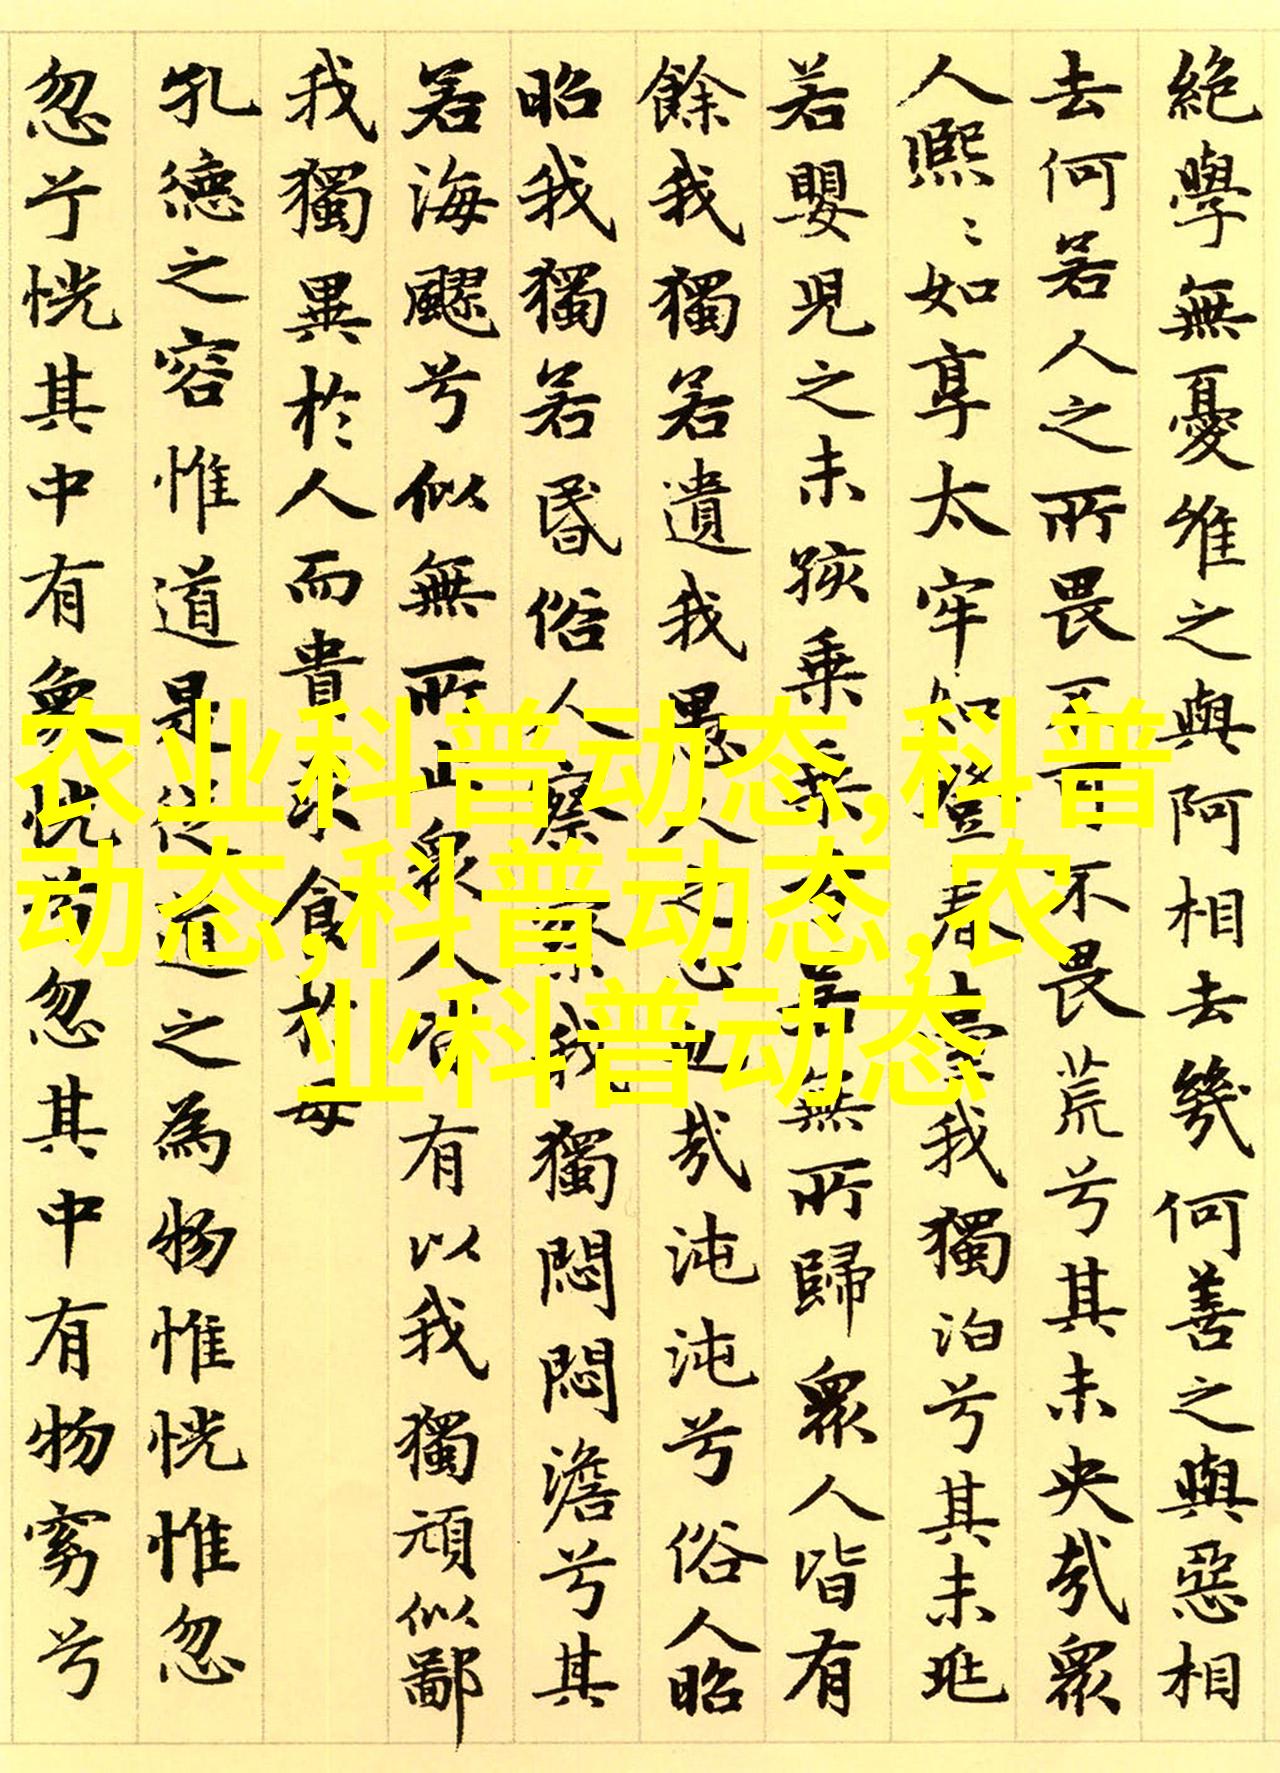 絕學無憂唯之與阿相去幾何善之與惡相
去何若人之所畏不可不畏荒兮其未央哉眾
人熙〻如享太牢如登春臺我獨泊兮其未兆
若嬰兒之未孩乘乘兮若無所歸眾人皆有
餘我獨若遺我愚人之心也哉沌沌兮俗人昭
昭我獨若昏俗人察察我獨悶悶澹兮其
若海飂兮似無所止眾人皆有以我獨頑似鄙
我獨異於人而貴求食於母
孔德之容惟道是從道之為物惟恍惟忽
忽兮恍其中有象恍兮忽其中有物窈兮
农业科普动态,科普
动态,科普动态,农
业科普动态